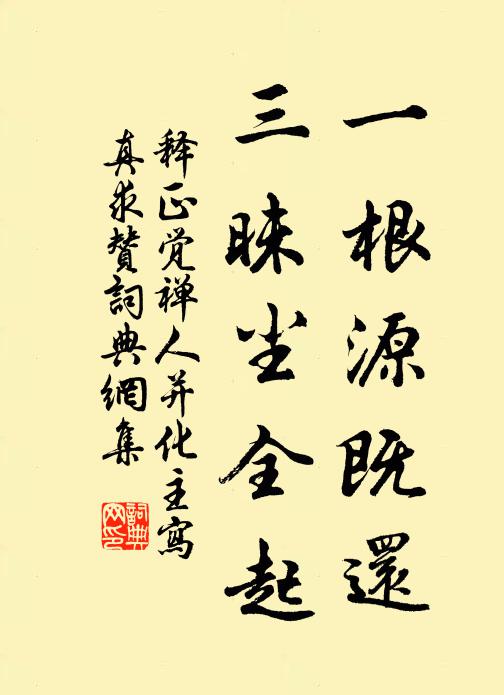 一根源既還
三昧尘全起
释正觉禅人并化主寫
真求赞詞典網集
詞典
网印